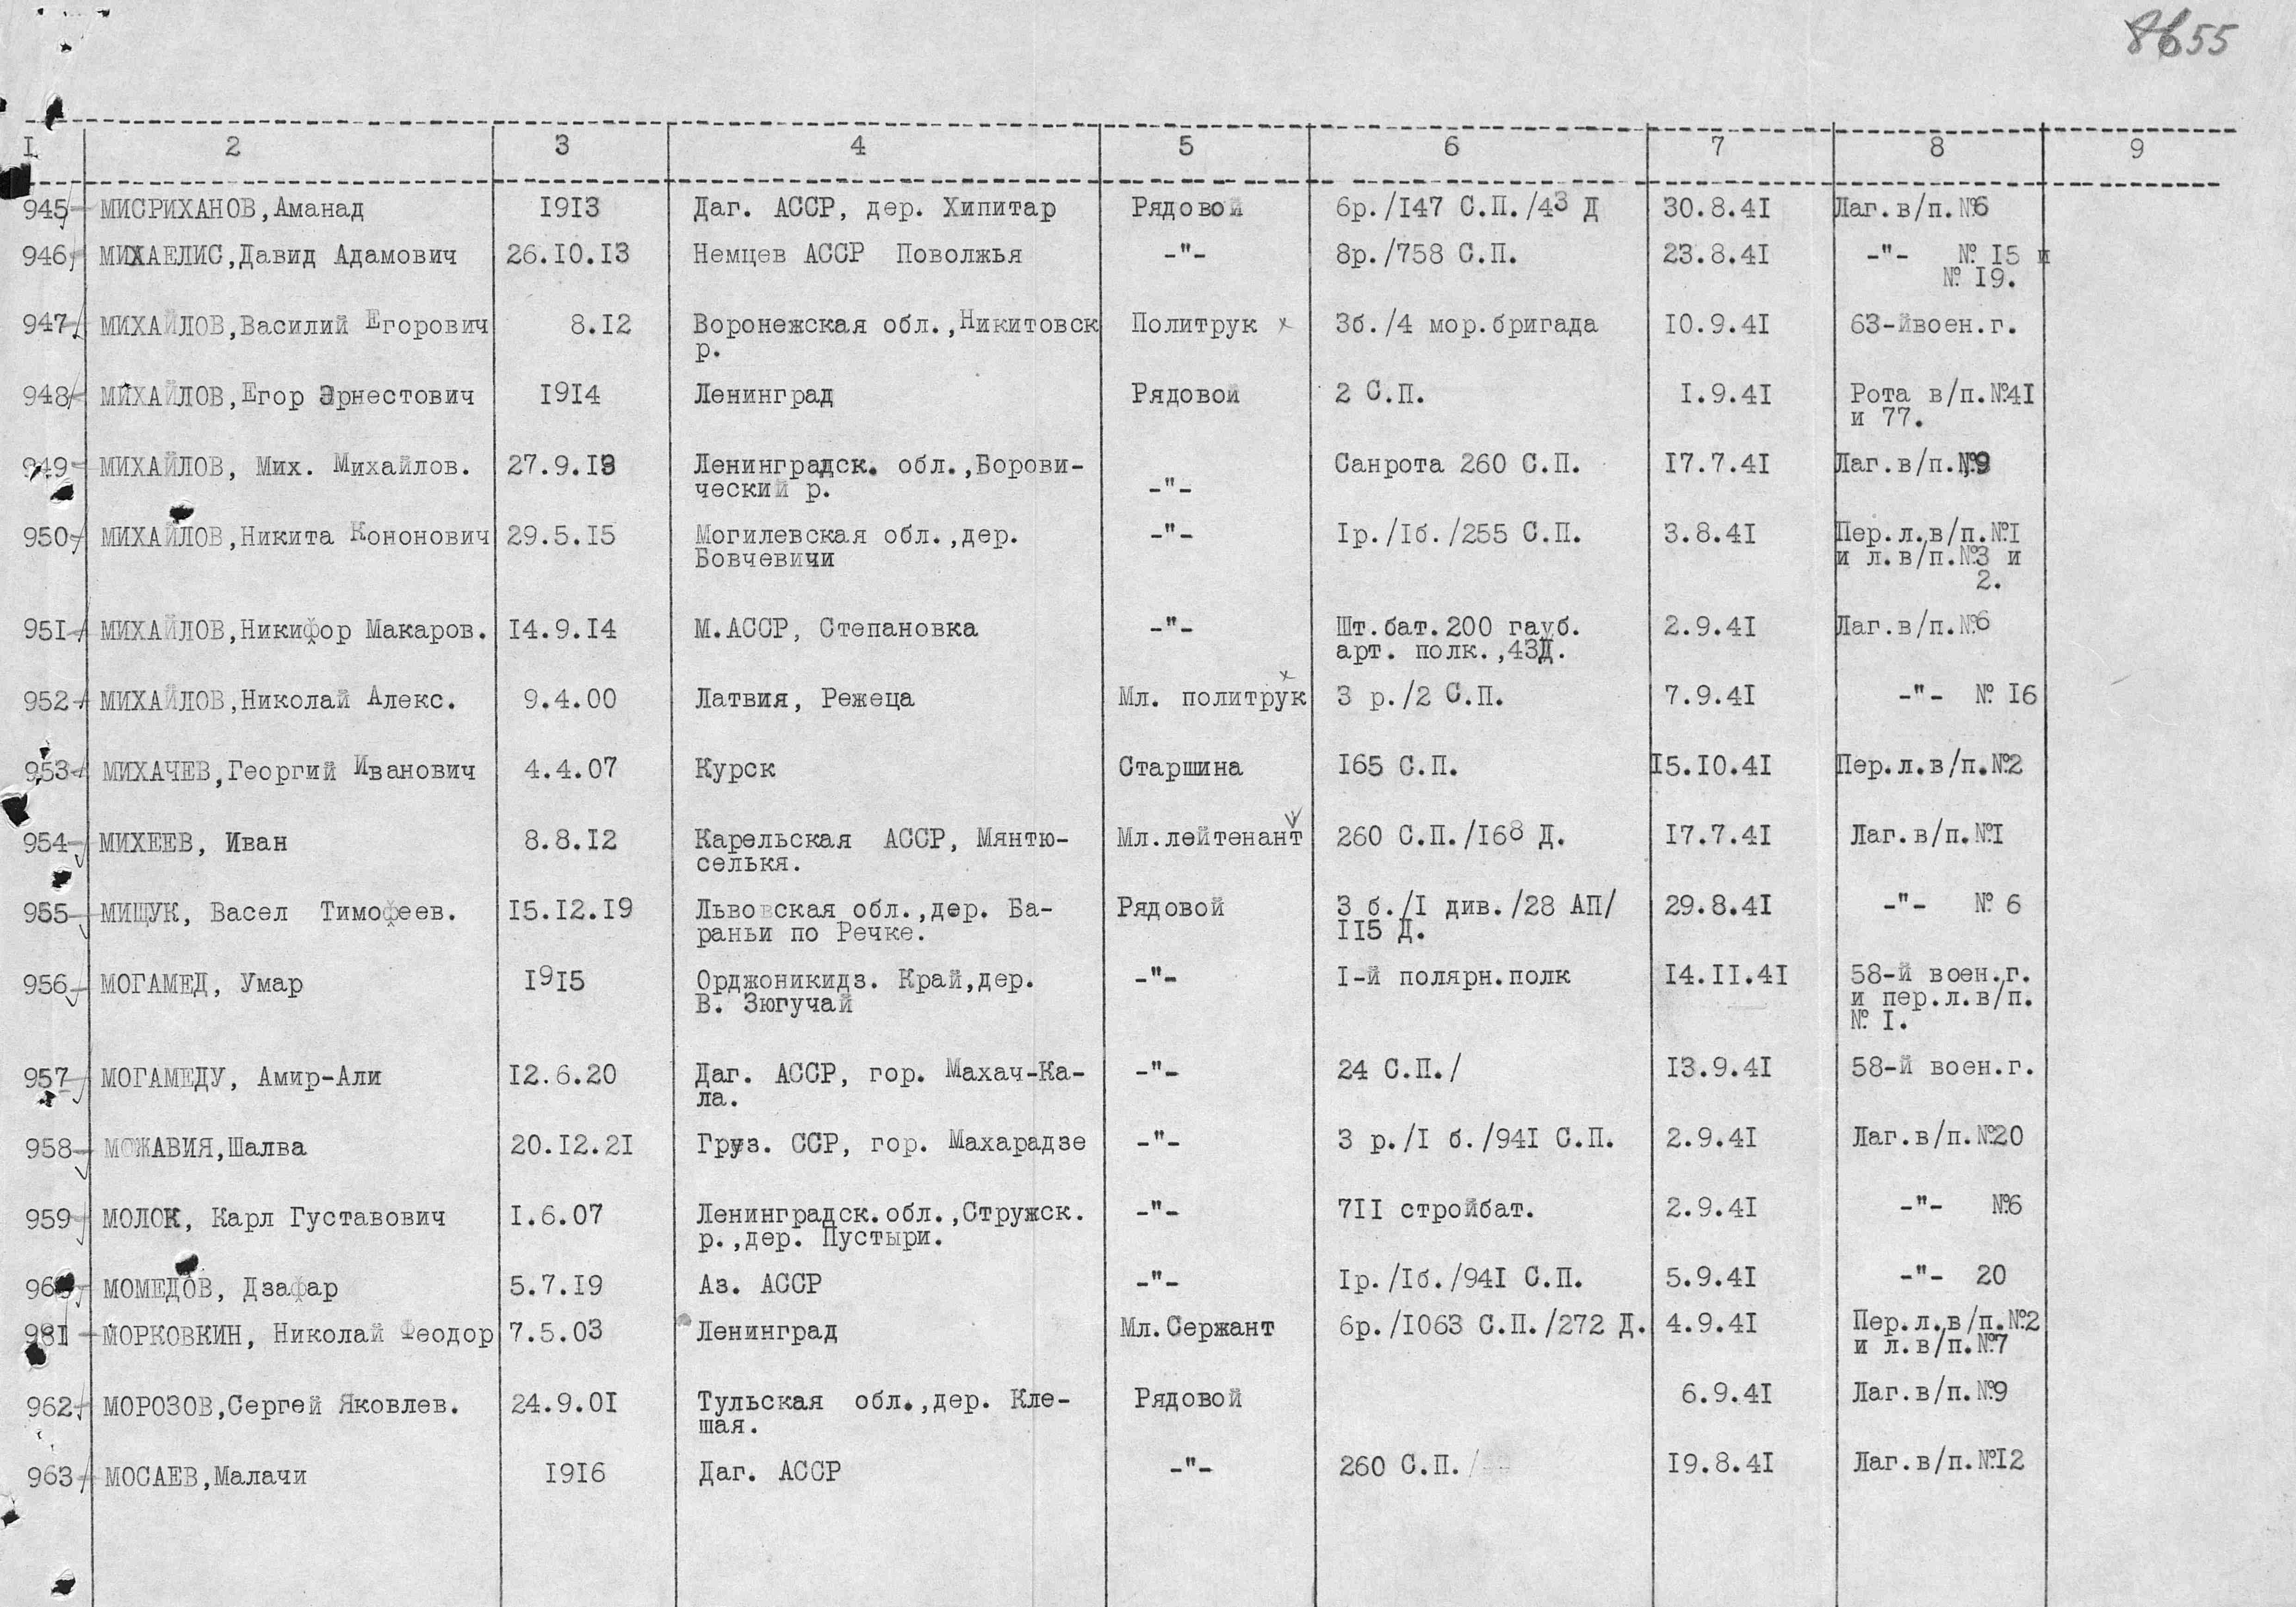 8655
I 2 3 4 5 6 7 8 9
945 МИСРИХАНОВ,Аманад I9I3 Даг. АССР, дер. Хипитар Рядовой 6р./I47 С.П./43 Д 30.8.4I Лаг.в/п.№6
946 МИХАЕЛИС,Давид Адамович 26.I0.I3 Немцев АССР Поволжья -"- 8р./758 С.П. 23.8.4I -"- № I5 и
№ I9.
947 МИХАЙЛОВ,Василий Егорович 8.I2 Воронежская обл.,Никитовск Политрук x 3б./4 мор.бригада I0.9.4I 63-йвоен.г.
р.
948 МИХАЙЛОВ,Егор Эрнестович I9I4 Ленинград Рядовой 2 С.П. I.9.4I Рота в/п.№4I
и 77.
949 МИХАЙЛОВ, Мих. Михайлов. 27.9.I3 Ленинградск. обл.,Борови- Санрота 260 С.П. I7.7.4I Лаг.в/п.№9
ческий р. -"-
950 МИХАЙЛОВ,Никита Кононович 29.5.I5 Могилевская обл.,дер. -"- Iр./Iб./255 С.П. 3.8.4I Пер.л.в/п.№I
Бовчевичи и л.в/п.№3 и
2.
95I МИХАЙЛОВ,Никифор Макаров. I4.9.I4 М.АССР, Степановка -"- Шт.бат.200 гауб. 2.9.4I Лаг.в/п.№6
арт. полк.,43Д.
952 МИХАЙЛОВ,Николай Алекс. 9.4.00 Латвия, Режеца Мл. политрук x 3 р./2 С.П. 7.9.4I -"- № I6
953 МИХАЧЕВ,Георгий Иванович 4.4.07 Курск Старшина I65 С.П. I5.I0.4I Пер.л.в/п.№2
954 МИХЕЕВ, Иван 8.8.I2 Карельская АССР, Мянтю- Мл.лейтенант 260 С.П./I68 Д. I7.7.4I Лаг.в/п.№I
селькя.
955 МИЩУК, Васел Тимофеев. I5.I2.I9 Львовская обл.,дер. Ба- Рядовой 3 б./I див./28 АП/ 29.8.4I -"- № 6
раньи по Речке. II5 Д.
956 МОГАМЕД, Умар I9I5 Орджоникидз. Край,дер. -"- I-й полярн.полк I4.II.4I 58-й воен.г.
В. Зюгучай и пер.л.в/п.
№ I.
957 МОГАМЕДУ, Амир-Али I2.6.20 Даг. АССР, гор. Махач-Ка- -"- 24 С.П./ I3.9.4I 58-й воен.г.
ла.
958 МОЖАВИЯ,Шалва 20.I2.2I Груз. ССР, гор. Махарадзе -"- 3 р./I б./94I С.П. 2.9.4I Лаг.в/п.№20
959 МОЛОК, Карл Густавович I.6.07 Ленинградск.обл.,Стружск. -"- 7II стройбат. 2.9.4I -"- №6
р.,дер. Пустыри.
МОМЕДОВ, Дзафар 5.7.I9 Аз. АССР -"- Iр./Iб./94I С.П. 5.9.4I -"- 20
98I МОРКОВКИН, Николай Феодор 7.5.03 Ленинград Мл.Сержант 6р./I063 С.П./272 Д. 4.9.4I Пер.л.в/п.№2
и л.в/п.№7
962 МОРОЗОВ,Сергей Яковлев. 24.9.0I Тульская обл.,дер. Кле- Рядовой 6.9.4I Лаг.в/п.№9
шая.
963 МОСАЕВ,Малачи I9I6 Даг. АССР -"- 260 С.П./ I9.8.4I Лаг.в/п.№I2